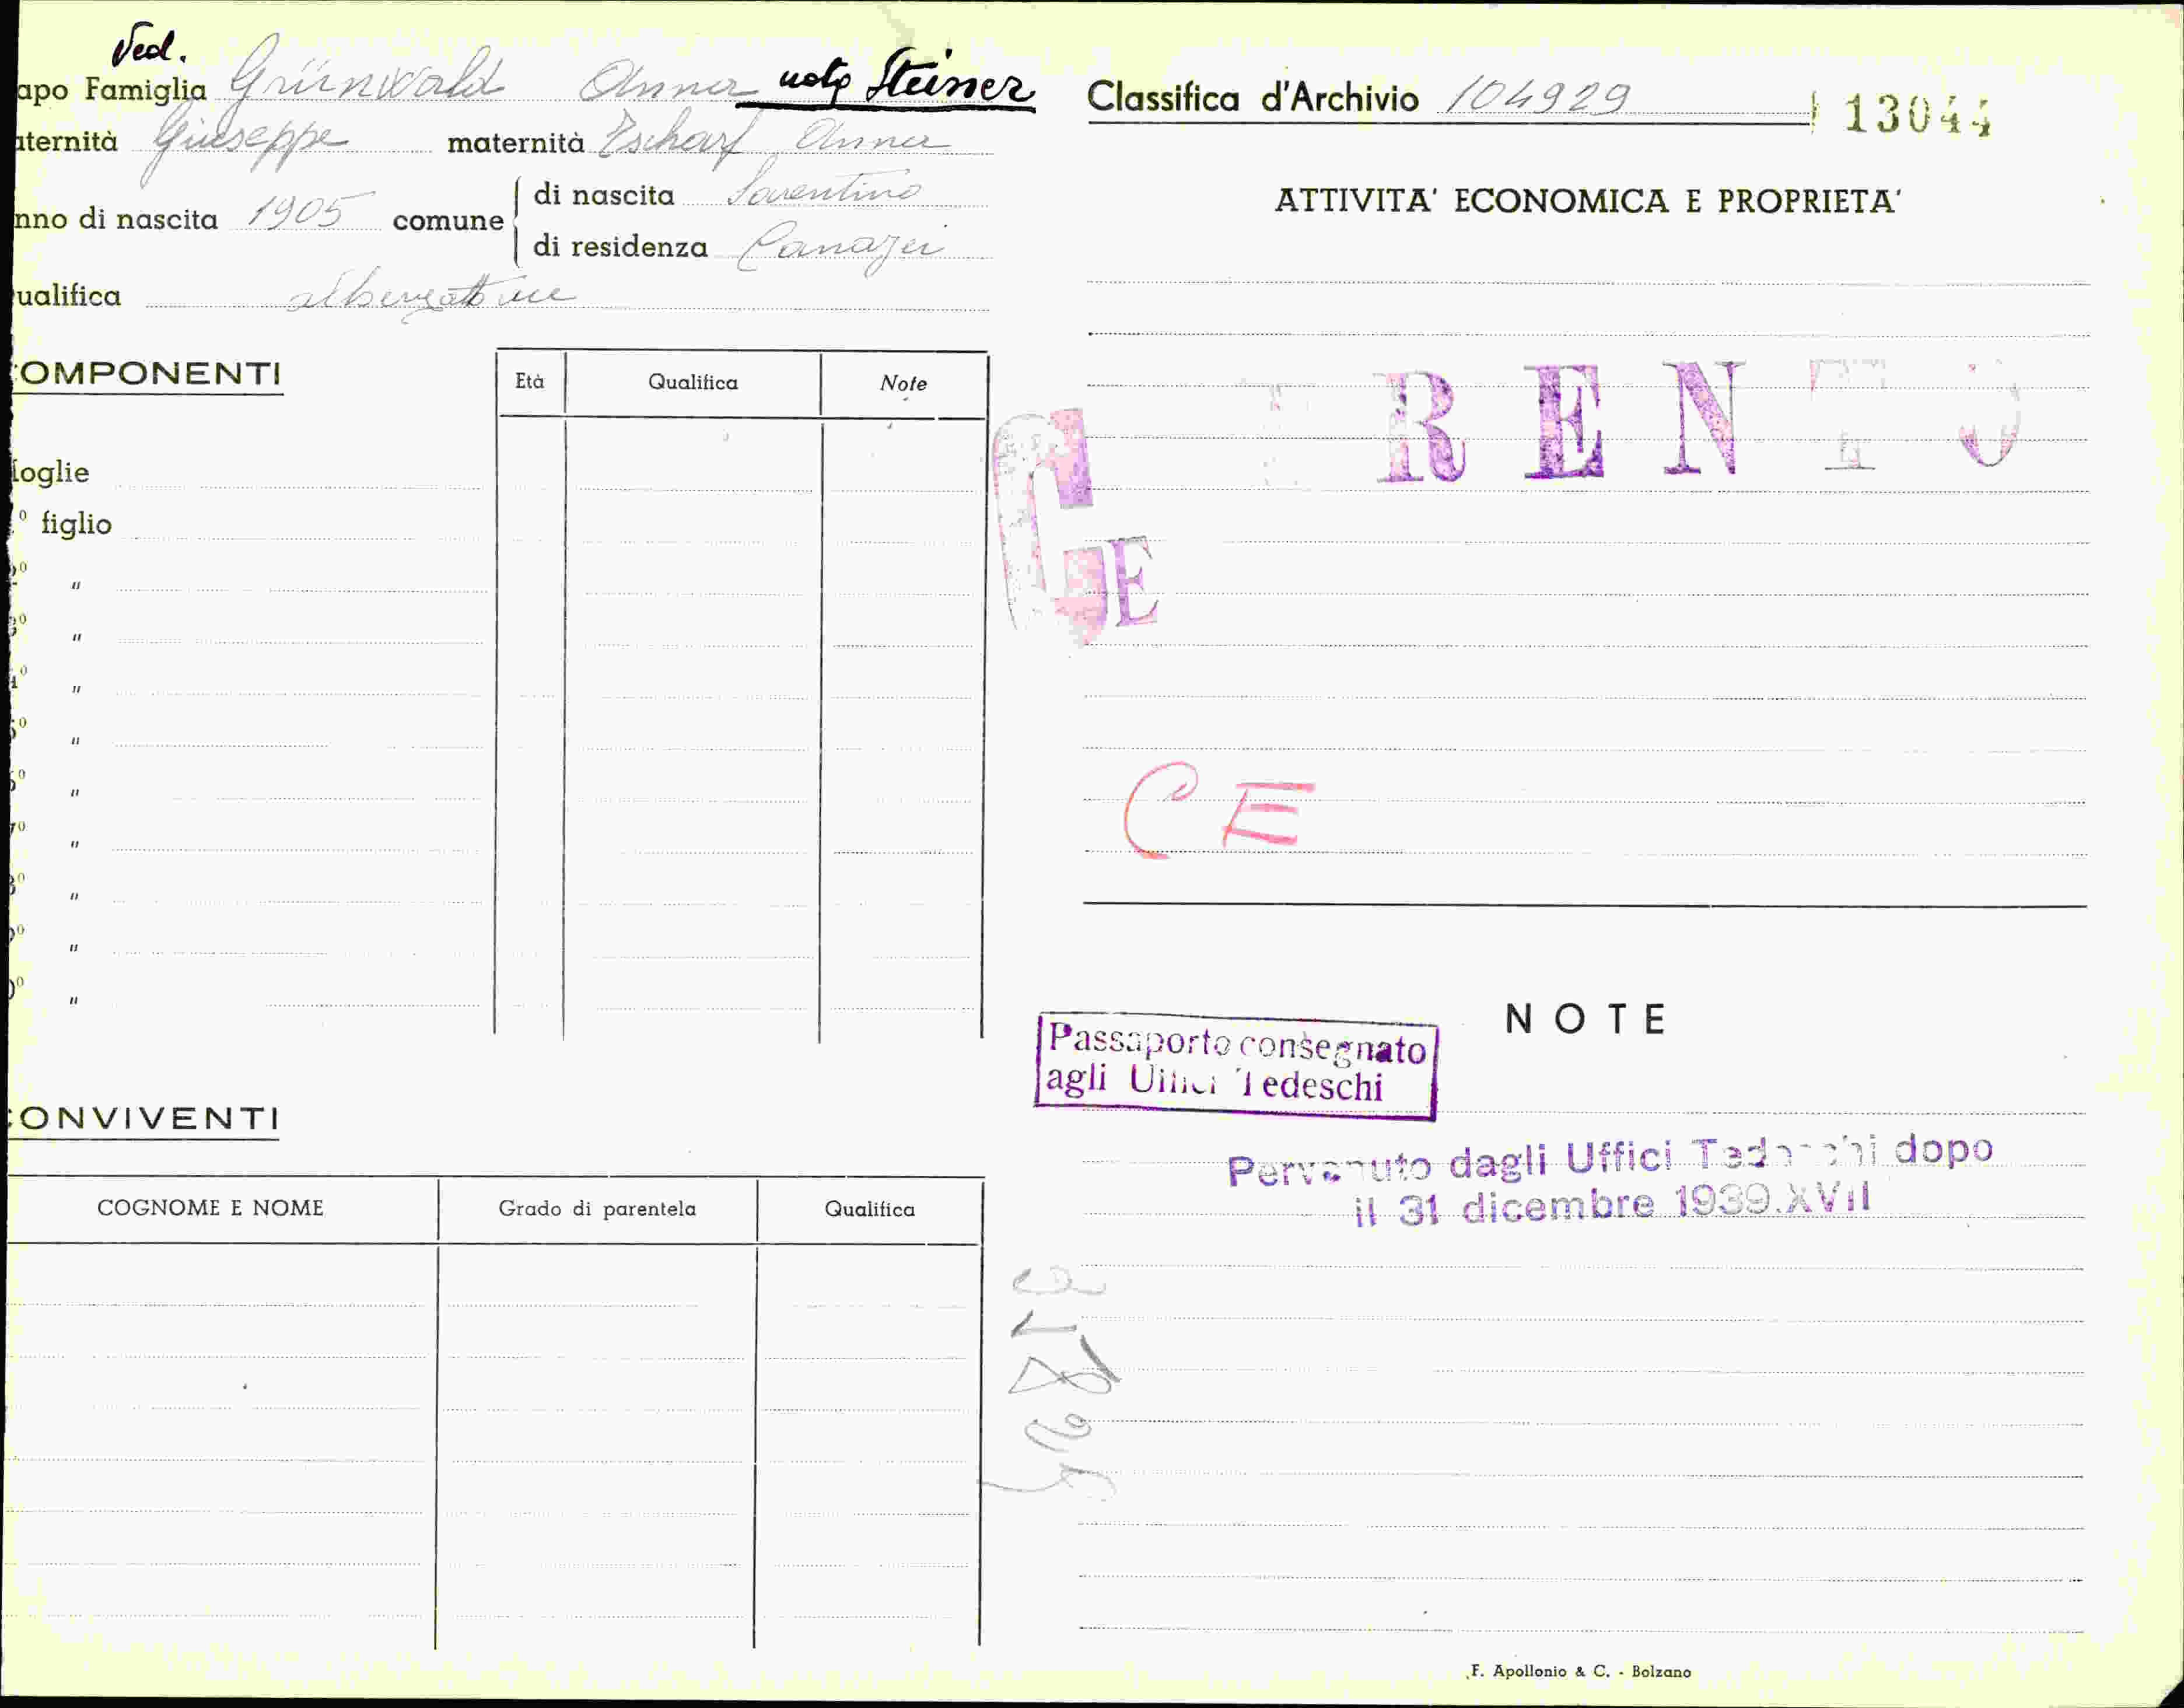 Ved.
apo Famiglia Grünwald Anna nata Steiner
aternità Giuseppe maternità Tscharf Anna
nno di nascita 1905 comune di nascita Sarentino
di residenza Canazei
ualifica albergatrice
COMPONENTI
Età Qualifica Note
oglie
° figlio
2° "
3° "
4° "
5° "
6° "
7° "
8° "
9° "
0° "
CONVIVENTI
COGNOME E NOME Grado di parentela Qualifica
Classifica d'Archivio 104929 13044
ATTIVITA' ECONOMICA E PROPRIETA'
TRENTO
C
E
CE
NOTE
Passaporto consegnato
agli Uffici Tedeschi
Pervenuto dagli Uffici Tedeschi dopo
il 31 dicembre 1939.XVII
F. Apollonio & C. - Bolzano